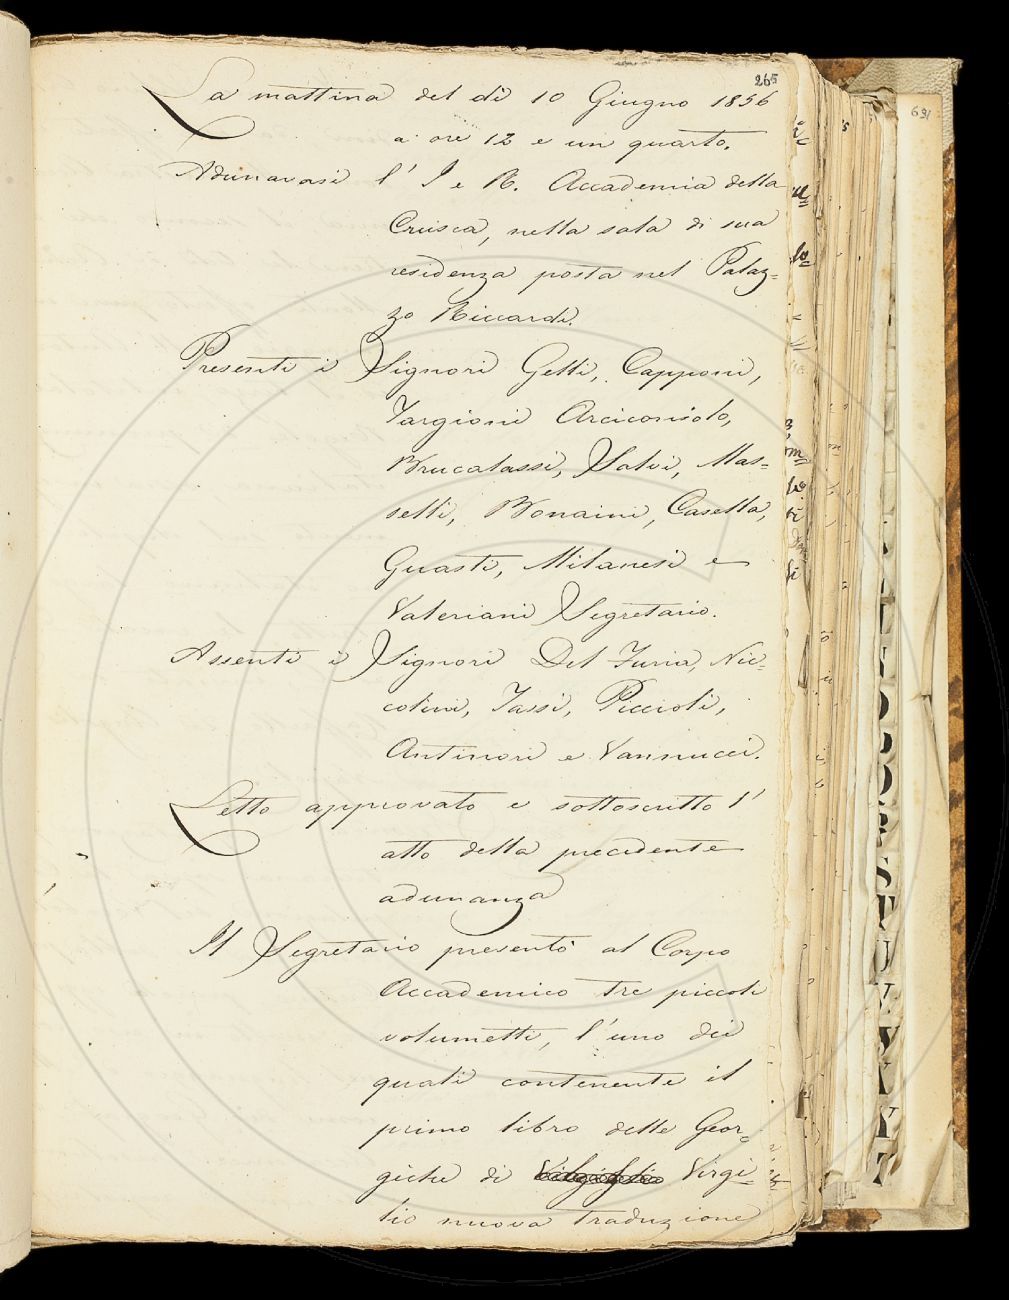 265
La mattina del dì 10 Giugno 1856
a ore 12 e un quarto.
Adunavasi l' I e R. Accademia della
Crusca, nella sala di sua
residenza posta nel Palaz=
zo Riccardi.
Presenti i Signori Gelli, Capponi,
Targioni Arciconsolo,
Brucalassi, Salvi, Mas=
selli, Bonaini, Casella,
Guasti, Milanesi e
Valeriani Segretario.
Assenti i Signori Del Furia, Nic=
colini, Tassi, Piccioli,
Antinori e Vannucci.
Letto approvato e sottoscritto l'
atto della precedente
adunanza
Il Segretario presentò al Corpo
Accademico tre piccoli
volumetti, l'uno dei
quali contenente il
primo libro delle Geor=
giche di Virgi=
lio nuova traduzione
691